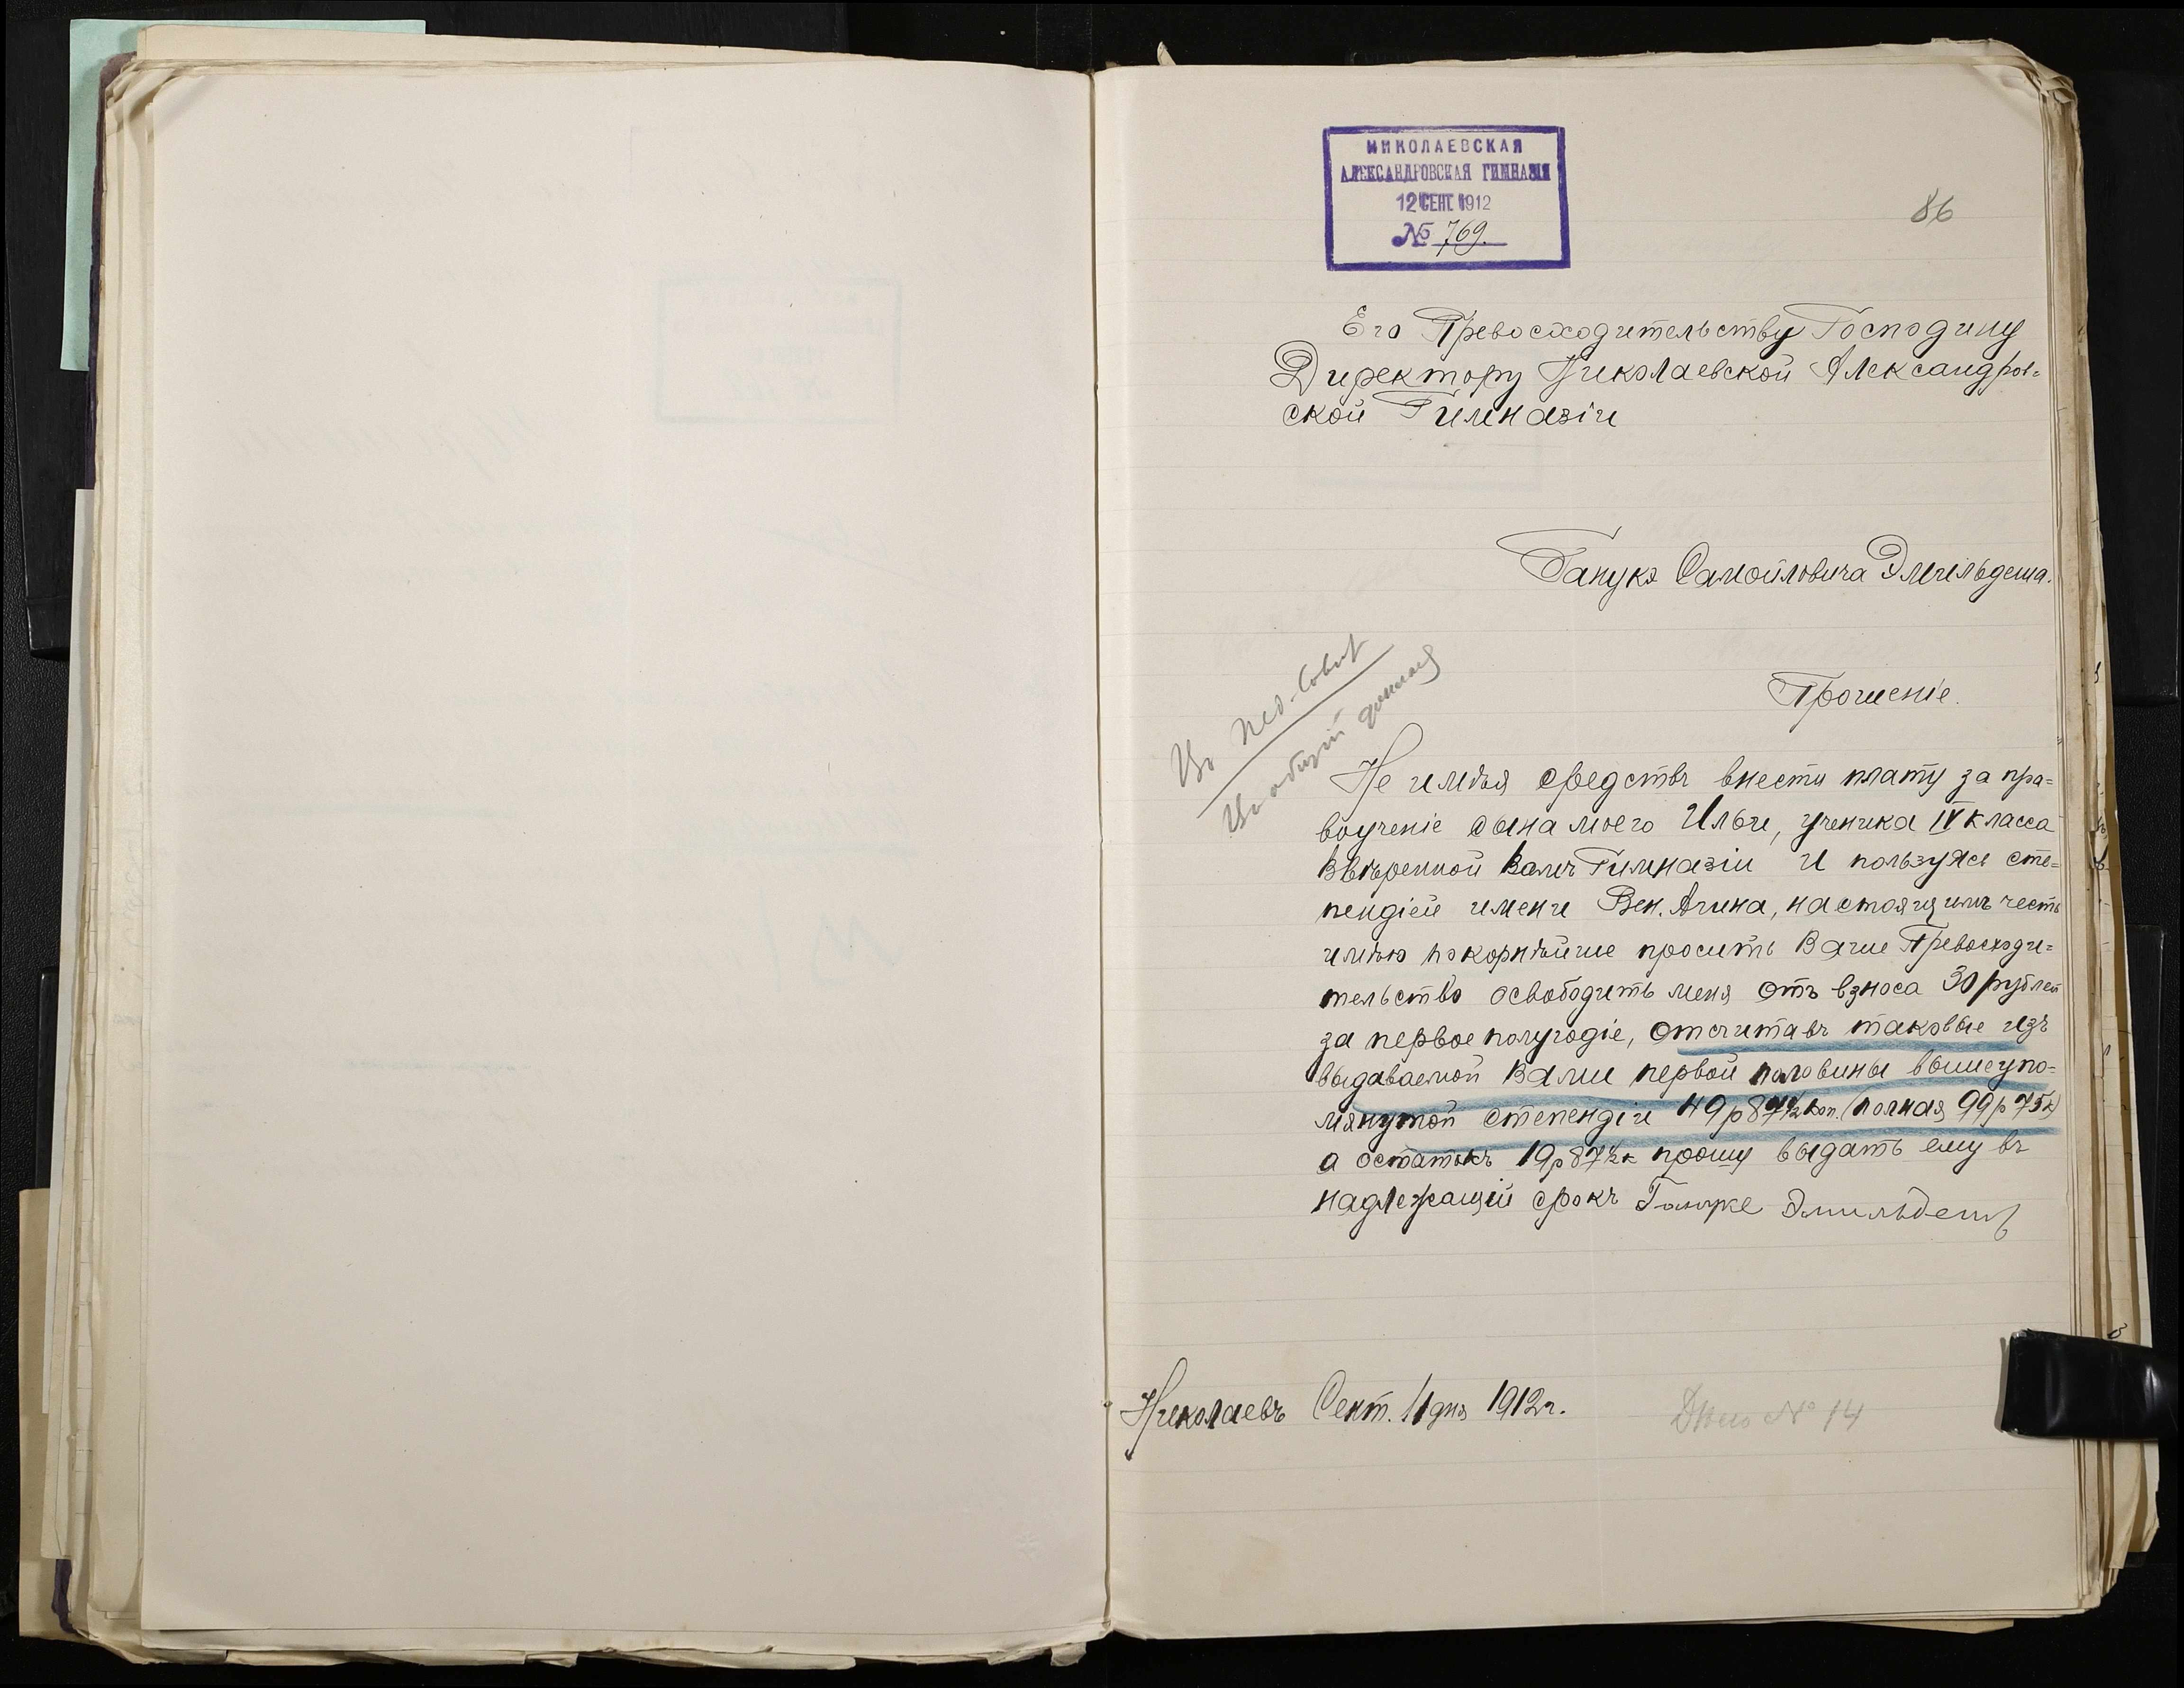 НИКОЛАЕВСКАЯ
АЛЕКСАНДРОВСКАЯ ГИМНАЗІЯ
12 СЕНТ. 1912
№ 769.
86
Его Превосходительству Господину
Директору Николаевской Александров=
ской Гимназіи
Самойловича Эмильдеша.
Прошеніе.
Въ Пед. Совѣт
Въ общій доклад
Не имѣя средствъ внести плату за пра=
воученіе сына моего Ильи, ученика IV класса
ввѣренной Вамъ Гимназіи и пользуясь сти=
пендіей имени Вен. Агина, настоящимъ честь
имѣю покорнѣйше просить Ваше Превосходи=
тельство освободить меня отъ взноса 30 рублей
за первое полугодіе, отсчитавъ таковые изъ
выдаваемой Вами первой половины вышеупо=
мянутой степендіи 49р 87½ коп. (полная 99р 75к)
а остатокъ 19р 87½к прошу выдать ему въ
надлежащій срокъ Эмильдешъ
Николаевъ Сент. 11 дня 1912 г.
Дѣло № 14